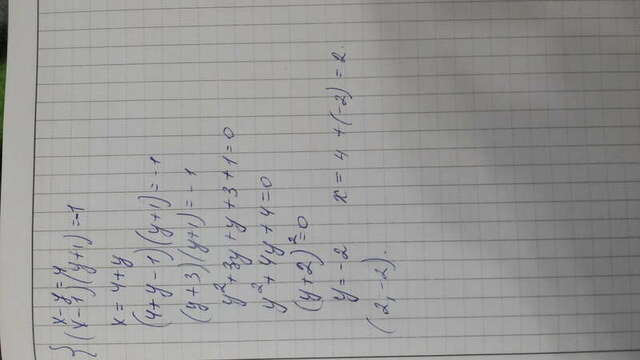 { x-y=4
(x-1)(y+1)=-1
x=4+y
(4+y-1)(y+1)=-1
(y+3)(y+1)=-1
y²+3y+y+3+1=0
y²+4y+4=0
(y+2)²=0
y=-2 x=4+(-2)=2.
(2,-2).